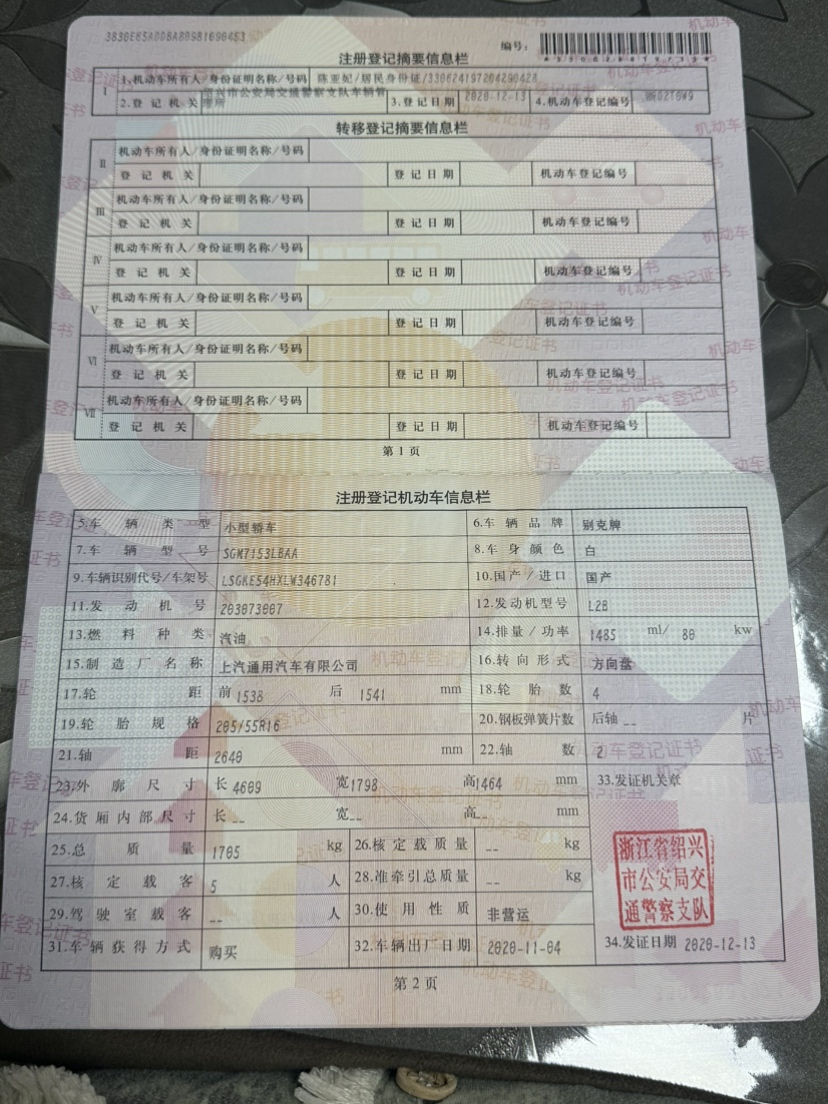 3830E65A008A88981690453
编号:
注册登记摘要信息栏
I 1.机动车所有人/身份证明名称/号码 陈亚妃/居民身份证/330624197204290424
2.登记机关 绍兴市公安局交通警察支队车辆管理所 3.登记日期 2020-12-13 4.机动车登记编号
转移登记摘要信息栏
II 机动车所有人/身份证明名称/号码
登记机关 登记日期 机动车登记编号
III 机动车所有人/身份证明名称/号码
登记机关 登记日期 机动车登记编号
IV 机动车所有人/身份证明名称/号码
登记机关 登记日期 机动车登记编号
V 机动车所有人/身份证明名称/号码
登记机关 登记日期 机动车登记编号
VI 机动车所有人/身份证明名称/号码
登记机关 登记日期 机动车登记编号
VII 机动车所有人/身份证明名称/号码
登记机关 登记日期 机动车登记编号
第1页
注册登记机动车信息栏
5.车辆类型 小型轿车 6.车辆品牌 别克牌
7.车辆型号 SGM7153LBAA 8.车身颜色 白
9.车辆识别代号/车架号 LSGKE54HXLW346781 10.国产/进口 国产
11.发动机号 203073007 12.发动机型号 L2B
13.燃料种类 汽油 14.排量/功率 1485 ml/ 80 kw
15.制造厂名称 上汽通用汽车有限公司 16.转向形式 方向盘
17.轮距 前 1538 后 1541 mm 18.轮胎数 4
19.轮胎规格 205/55R16 20.钢板弹簧片数 后轴 -- 片
21.轴距 2640 mm 22.轴数 2
23.外廓尺寸 长 4609 宽 1798 高 1464 mm 33.发证机关章
24.货厢内部尺寸 长 -- 宽 -- 高 -- mm
25.总质量 1705 kg 26.核定载质量 -- kg
27.核定载客 5 人 28.准牵引总质量 -- kg
浙江省绍兴
市公安局交
通警察支队
29.驾驶室载客 -- 人 30.使用性质 非营运
31.车辆获得方式 购买 32.车辆出厂日期 2020-11-04 34.发证日期 2020-12-13
第2页